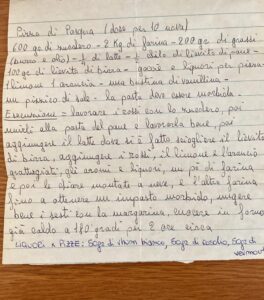 Pizza di Pasqua (dose per 10 uova)
600 gr di zucchero - 2 kg di farina - 200 gr di grassi
(burro e olio) - ½ l di latte - ½ chilo di lievito di pane -
100 gr di lievito di birra - aromi e liquori per pizza -
1 limone 1 arancia - una bustina di vanillina -
un pizzico di sale - la pasta deve essere morbida
Esecuzione = lavorare i rossi con lo zucchero, poi
unirli alla pasta del pane e lavorarla bene, poi
aggiungere il latte dove si è fatto sciogliere il lievito
di birra, aggiungere i rossi, il limone e l'arancio
grattugiati, gli aromi e liquori, un pò di farina
e poi le chiare montate a neve, e l'altra farina
fino a ottenere un impasto morbido, ungere
bene i testi con la margarina, cuocere in forno
già caldo a 180 gradi per 2 ore circa
LIQUORI x PIZZE: 50gr di rhum bianco, 50gr di rosolio, 50gr di
vermouth